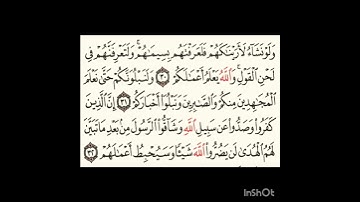 وَلَوْ نَشَآءُ لَأَرَيْنَٰكَهُمْ فَلَعَرَفْتَهُم بِسِيمَٰهُمْ ۚ وَلَتَعْرِفَنَّهُمْ فِى
لَحْنِ ٱلْقَوْلِ ۚ وَٱللَّهُ يَعْلَمُ أَعْمَٰلَكُمْ ٣٠ وَلَنَبْلُوَنَّكُمْ حَتَّىٰ نَعْلَمَ
ٱلْمُجَٰهِدِينَ مِنكُمْ وَٱلصَّٰبِرِينَ وَنَبْلُوَا۟ أَخْبَارَكُمْ ٣١ إِنَّ ٱلَّذِينَ
كَفَرُوا۟ وَصَدُّوا۟ عَن سَبِيلِ ٱللَّهِ وَشَآقُّوا۟ ٱلرَّسُولَ مِنۢ بَعْدِ مَا تَبَيَّنَ
لَهُمُ ٱلْهُدَىٰ لَن يَضُرُّوا۟ ٱللَّهَ شَيْـًٔا وَسَيُحْبِطُ أَعْمَٰلَهُمْ ٣٢
InShOt